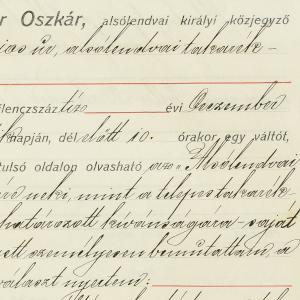 r Oszkár, alsólendvai királyi közjegyző
úr, alsólendvai takarék-
ilencszáztíz évi December
napján, dél előtt 10. órakor egy váltót,
tulsó oldalon olvasható az „Alsólendvai
neki, mint a telepes takarék-
határozott kívánságára - saját
ett személyesen bemutattam, a
választ nyertem: